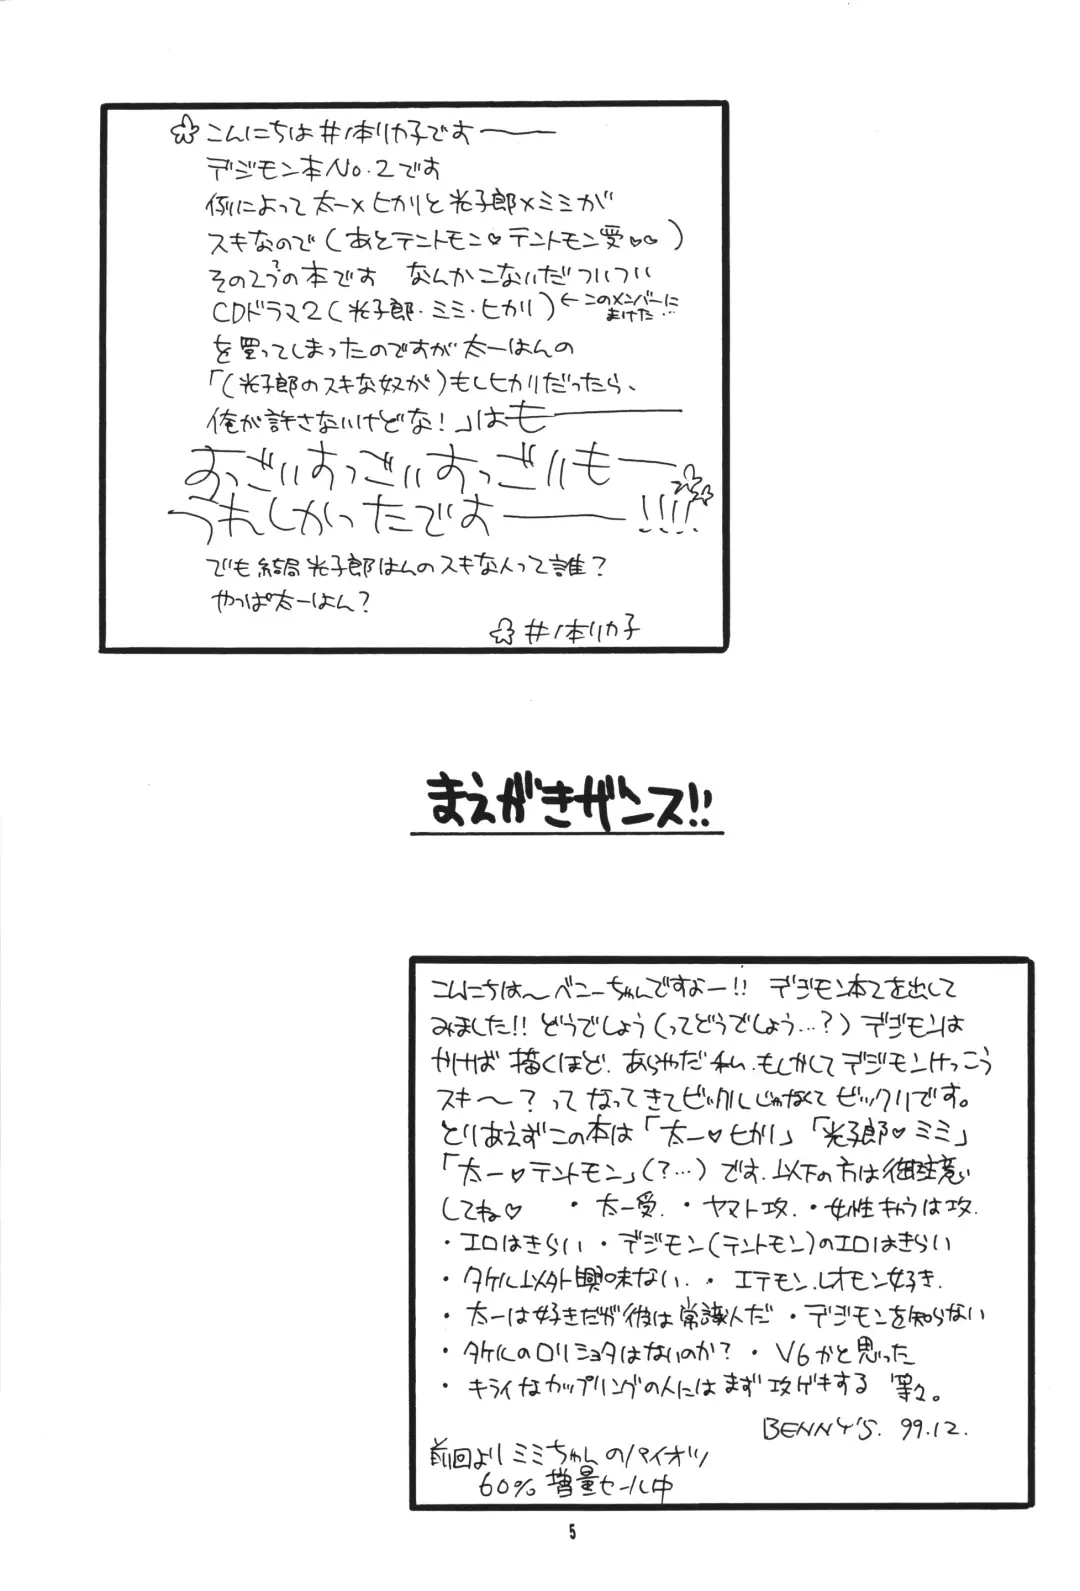 ☆こんにちは井ノ本リカ子です――
デジモン本No.2です
例によって太一×ヒカリと光子郎×ミミが
スキなので(あとテントモン♡テントモン受♡♡)
その2つ?の本です なんかこないだついつい
CDドラマ2(光子郎・ミミ・ヒカリ)←このメンバーにまけた…
を買ってしまったのですが太一はんの
「(光子郎のスキな奴が)もしヒカリだったら、
俺が許さないけどな!」はも――
すっごいすっごいすっごいも――
うれしかったです――!!!!
でも結局光子郎はんのスキな人って誰?
やっぱ太一はん?
☆井ノ本リカ子
まえがきザンス!!
こんにちは〜ベニーちゃんですよー!! デジモン本2を出して
みました!! どうでしょう(ってどうでしょう…?) デジモンは
やけば描くほど、あらやだ私、もしかしてデジモンけっこう
スキ〜?ってなってきてビックルじゃなくてビックリです。
とりあえずこの本は「太一♡ヒカリ」「光子郎♡ミミ」
「太一♡テントモン」(?…)です。以下の方は御注意
してね♡ ・太一受. ・ヤマト攻. ・女性キャラは攻.
・エロはきらい ・デジモン(テントモン)のエロはきらい
・タケル以外興味ない. ・エテモン、レオモン好き.
・太一は好きだが彼は常識人だ ・デジモンを知らない
・タケルのロリショタはないのか? ・V6かと思った
・キライなカップリングの人にはまず攻ゲキする 等々。
BENNY'S. 99.12.
前回よりミミちゃんのパイオツ
60%増量セール中
5